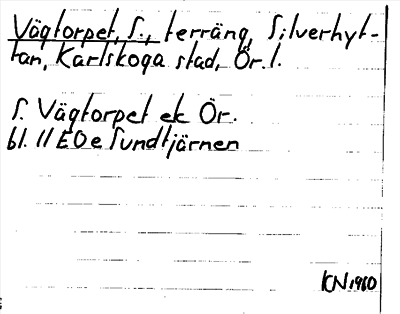 Vägtorpet, S., terräng, Silverhyt-
tan, Karlskoga stad, Ör. l.
S. Vägtorpet ek Ör.
bl. 11 E 0 e Sundtjärnen
KN 1960